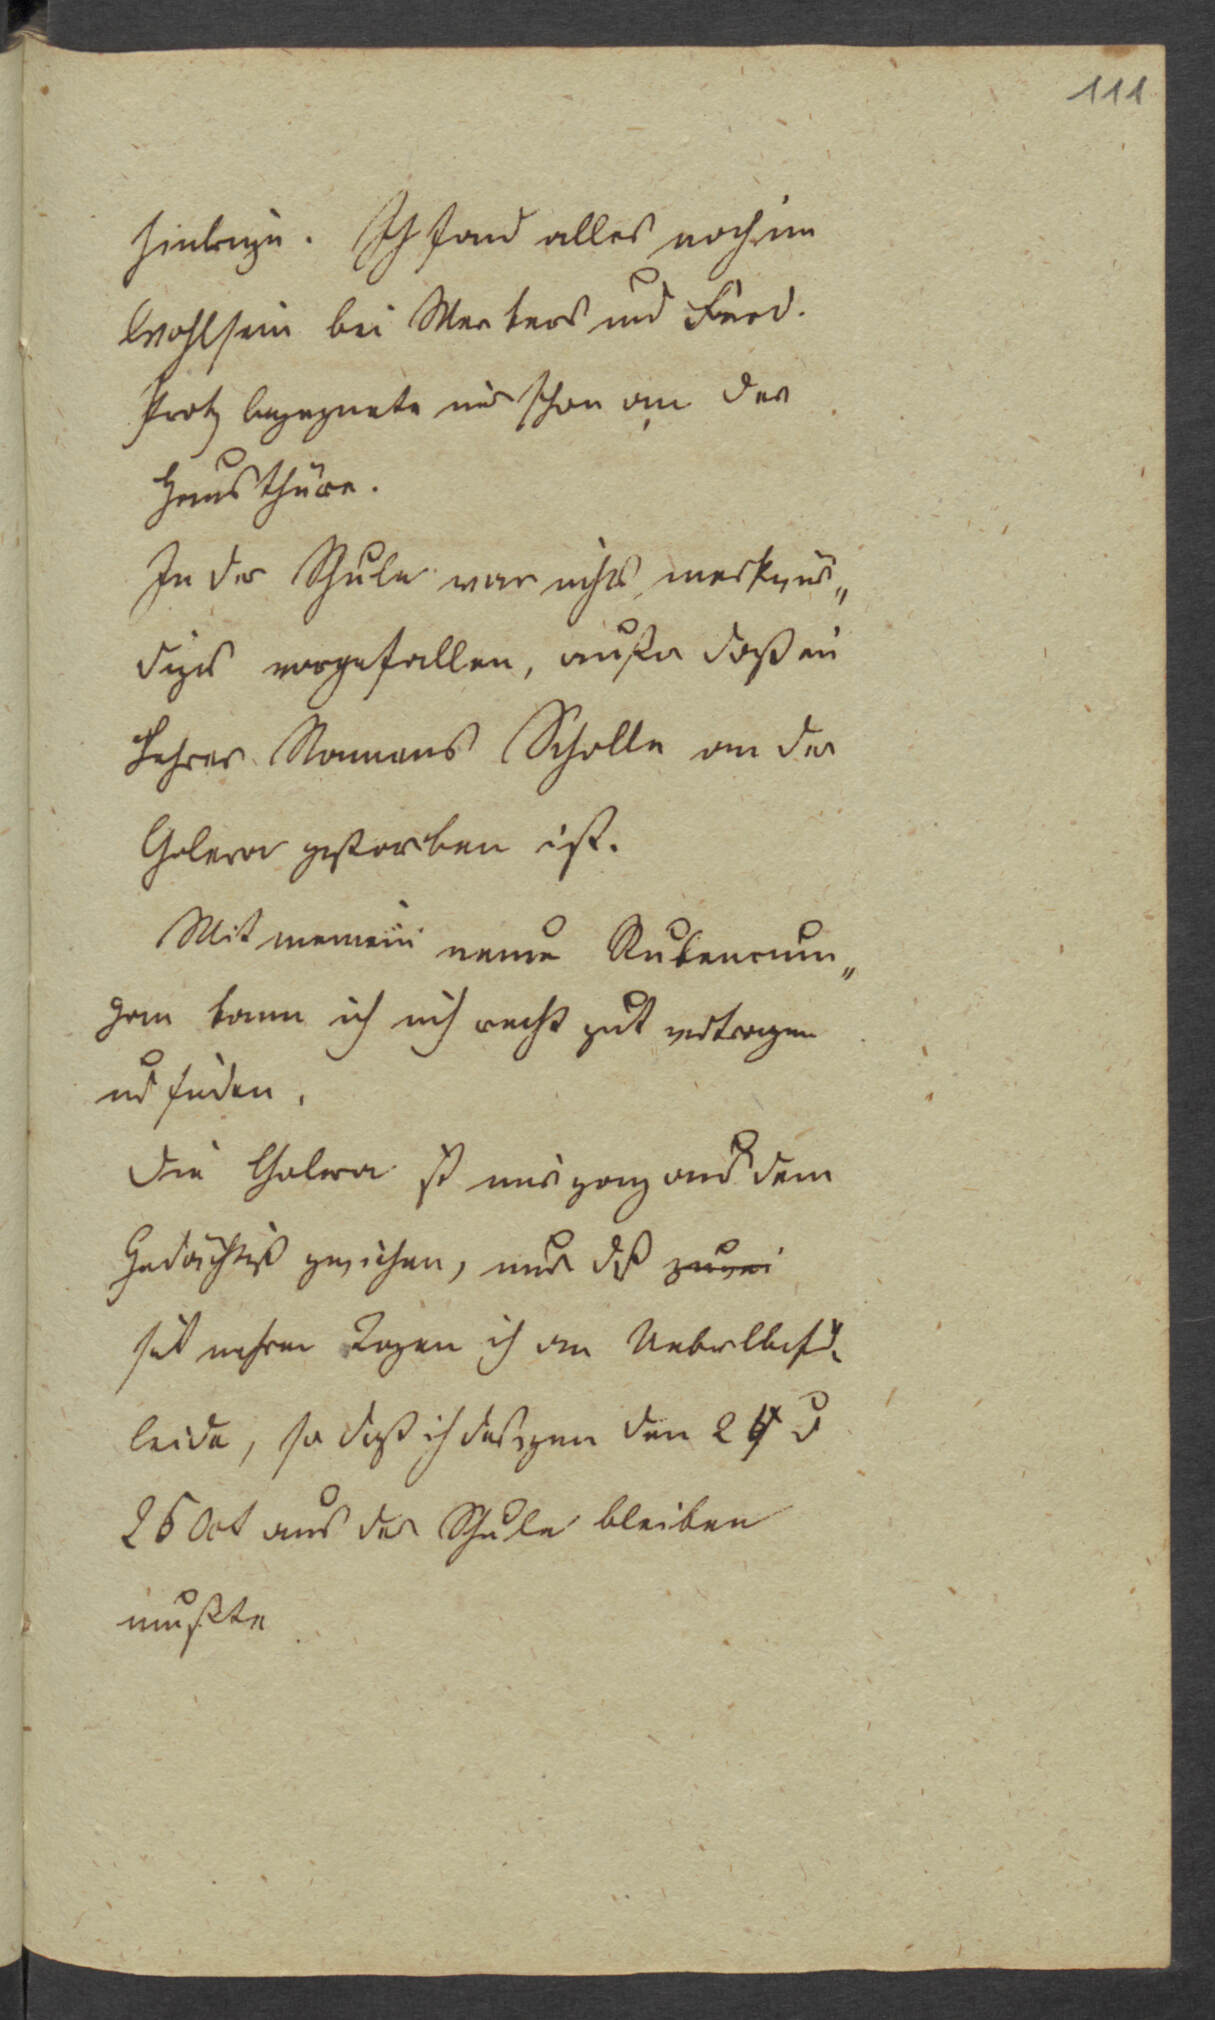 111
hinbringe. Ich fand alles noch im
Wohlsein bei Merkers und Ferd.
Protz begegnete mir schon an der
Hausthüre.
In der Schule war nichts merkwür„
diges vorgefallen, außer daß ein
Lehrer Namens Scholle an der
Cholera gestorben ist.
Mit meinem neuen Stubencum„
pan kann ich mich recht gut vertragen
und finden.
Die Cholera ist mir ganz aus dem
Gedächtniß gewichen, nur daß zwei
seit mehren Tagen ich an Uebelbef.
leide, so daß ich deswegen den 24 u
25 Oct aus der Schule bleiben
mußte